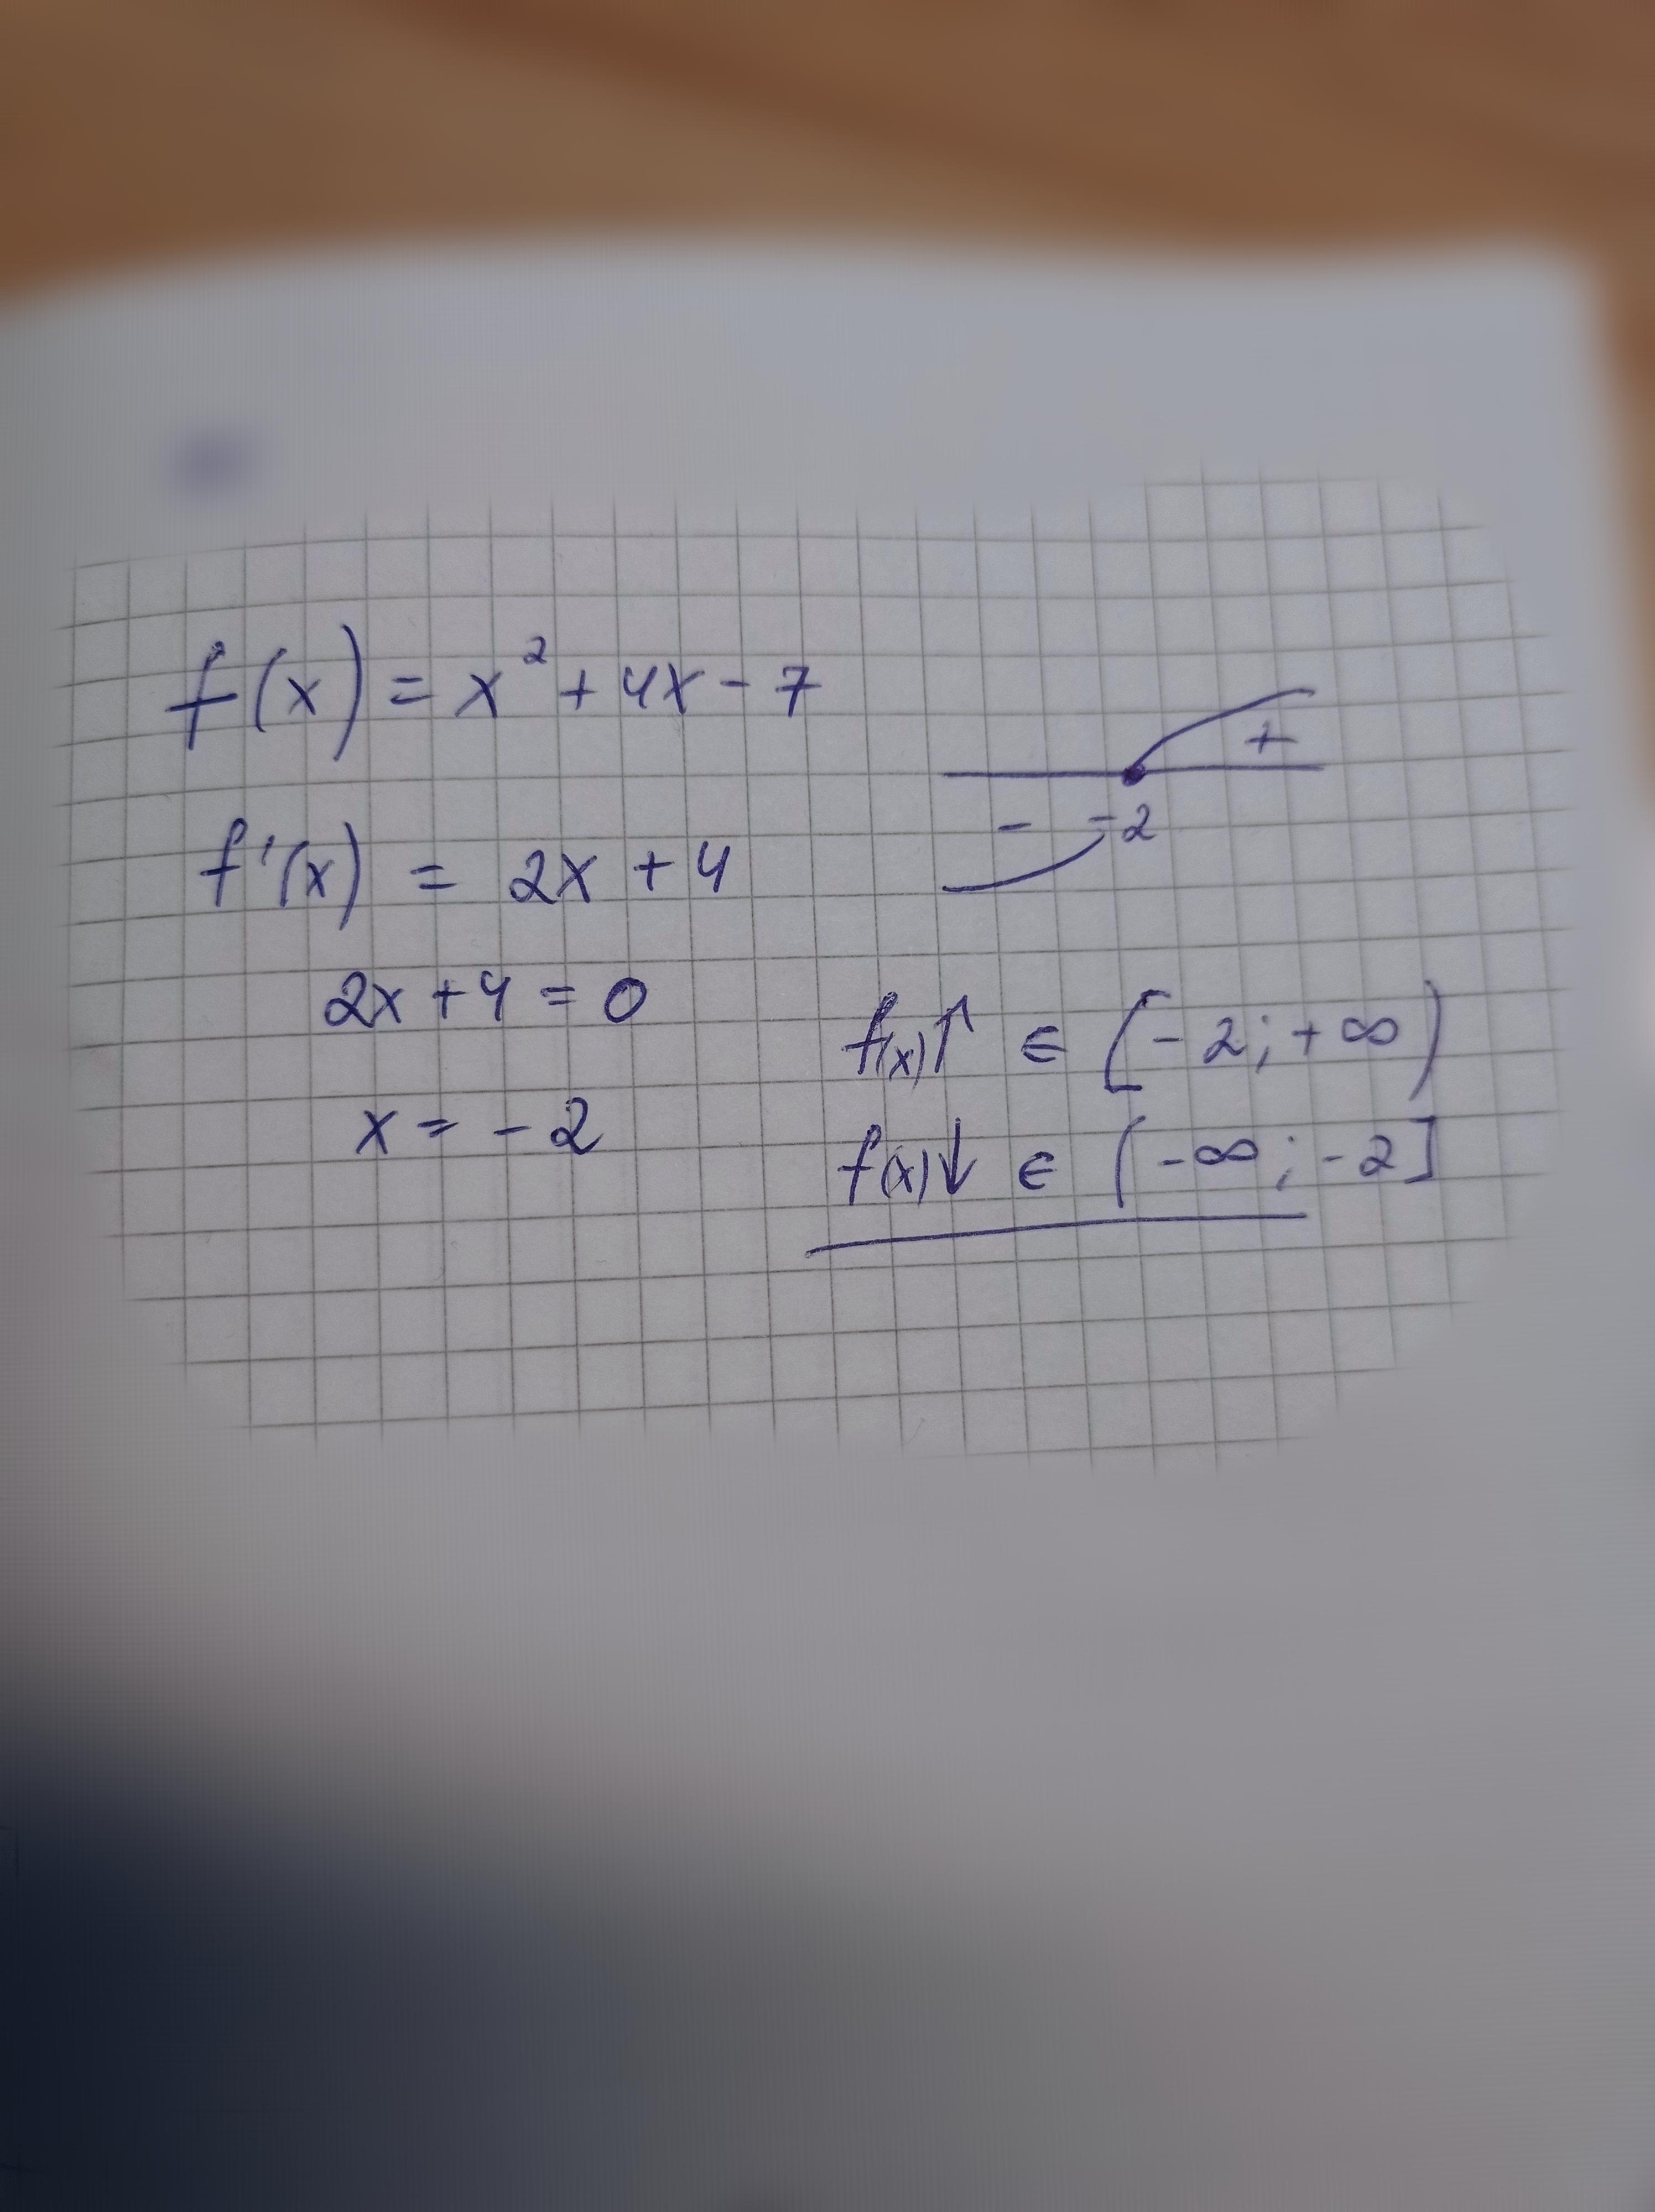 f(x) = x² + 4x - 7
f'(x) = 2x + 4
2x + 4 = 0
x = - 2
+
- -2
f(x)↑ ∈ [-2; +∞)
f(x)↓ ∈ (-∞; -2]